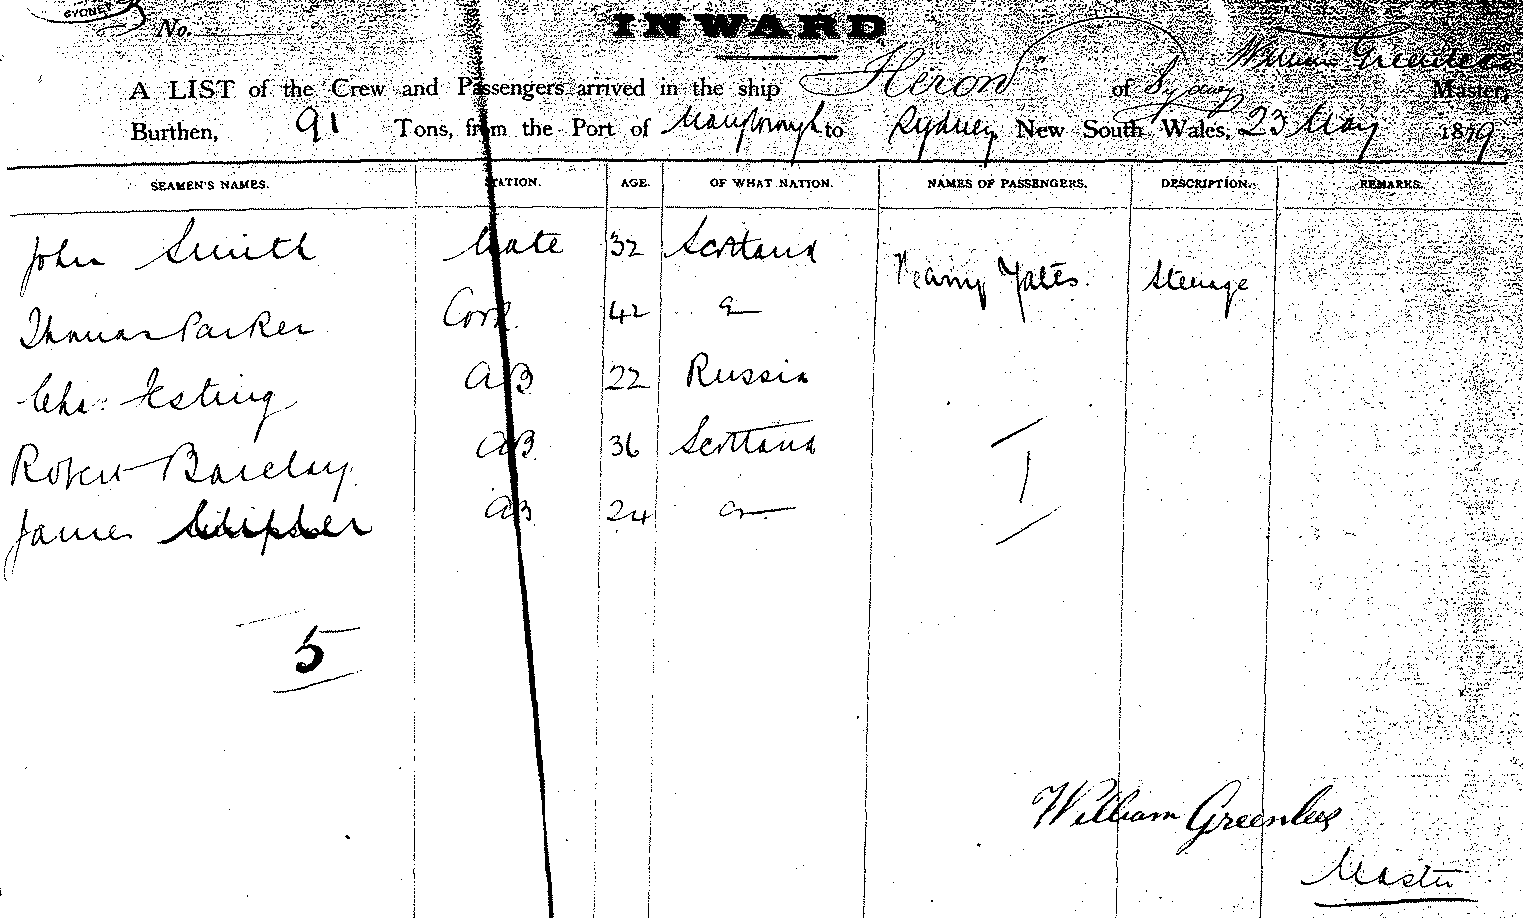 SYDNEY
No.
INWARD
William Greenlees
A LIST of the Crew and Passengers arrived in the ship "Heron" of Sydney Master,
Burthen, 91 Tons, from the Port of Maryborough to Sydney, New South Wales, 23 May 1879
SEAMEN'S NAMES. STATION. AGE. OF WHAT NATION. NAMES OF PASSENGERS. DESCRIPTION. REMARKS.
John Smith Mate 32 Scotland
Yates. Steerage
Thomas Parker Cook 42
Chs. AB 22 Russia
Robert Barclay AB 36 Scotland
1
James AB 24
5
William Greenlees
Master